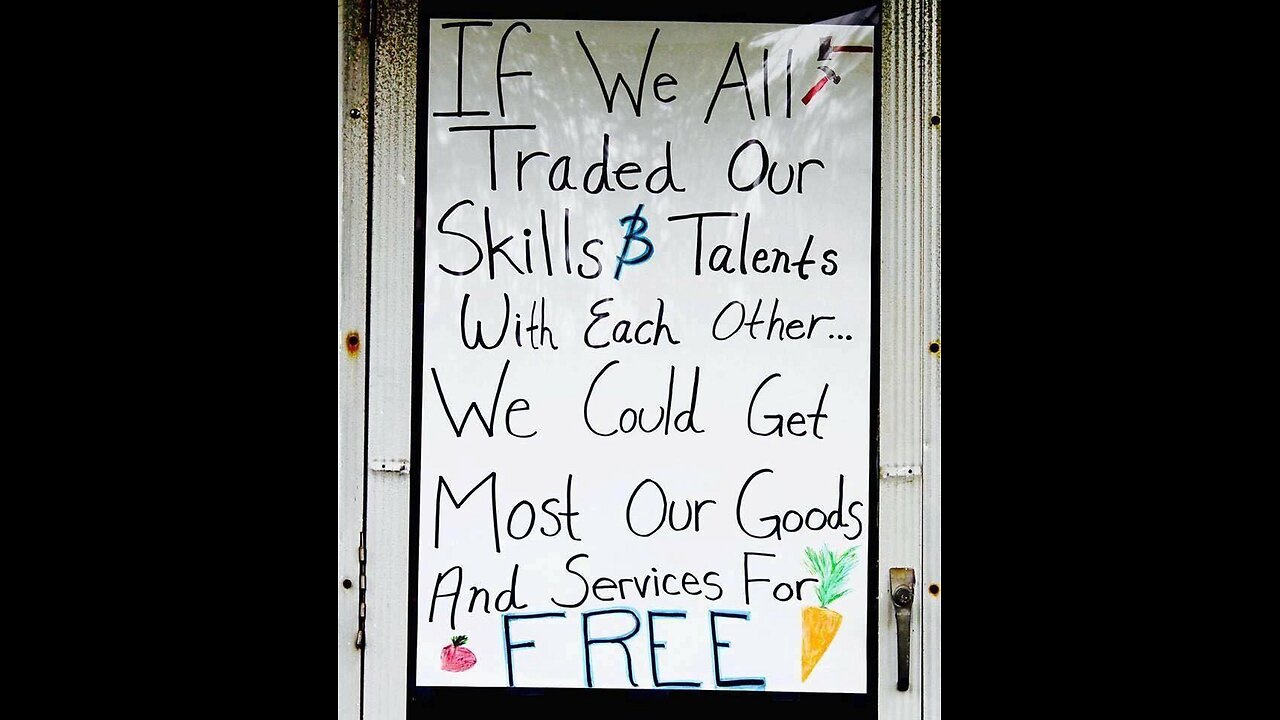 If We All
Traded Our
Skills & Talents
With Each Other...
We Could Get
Most Our Goods
And Services For
FREE